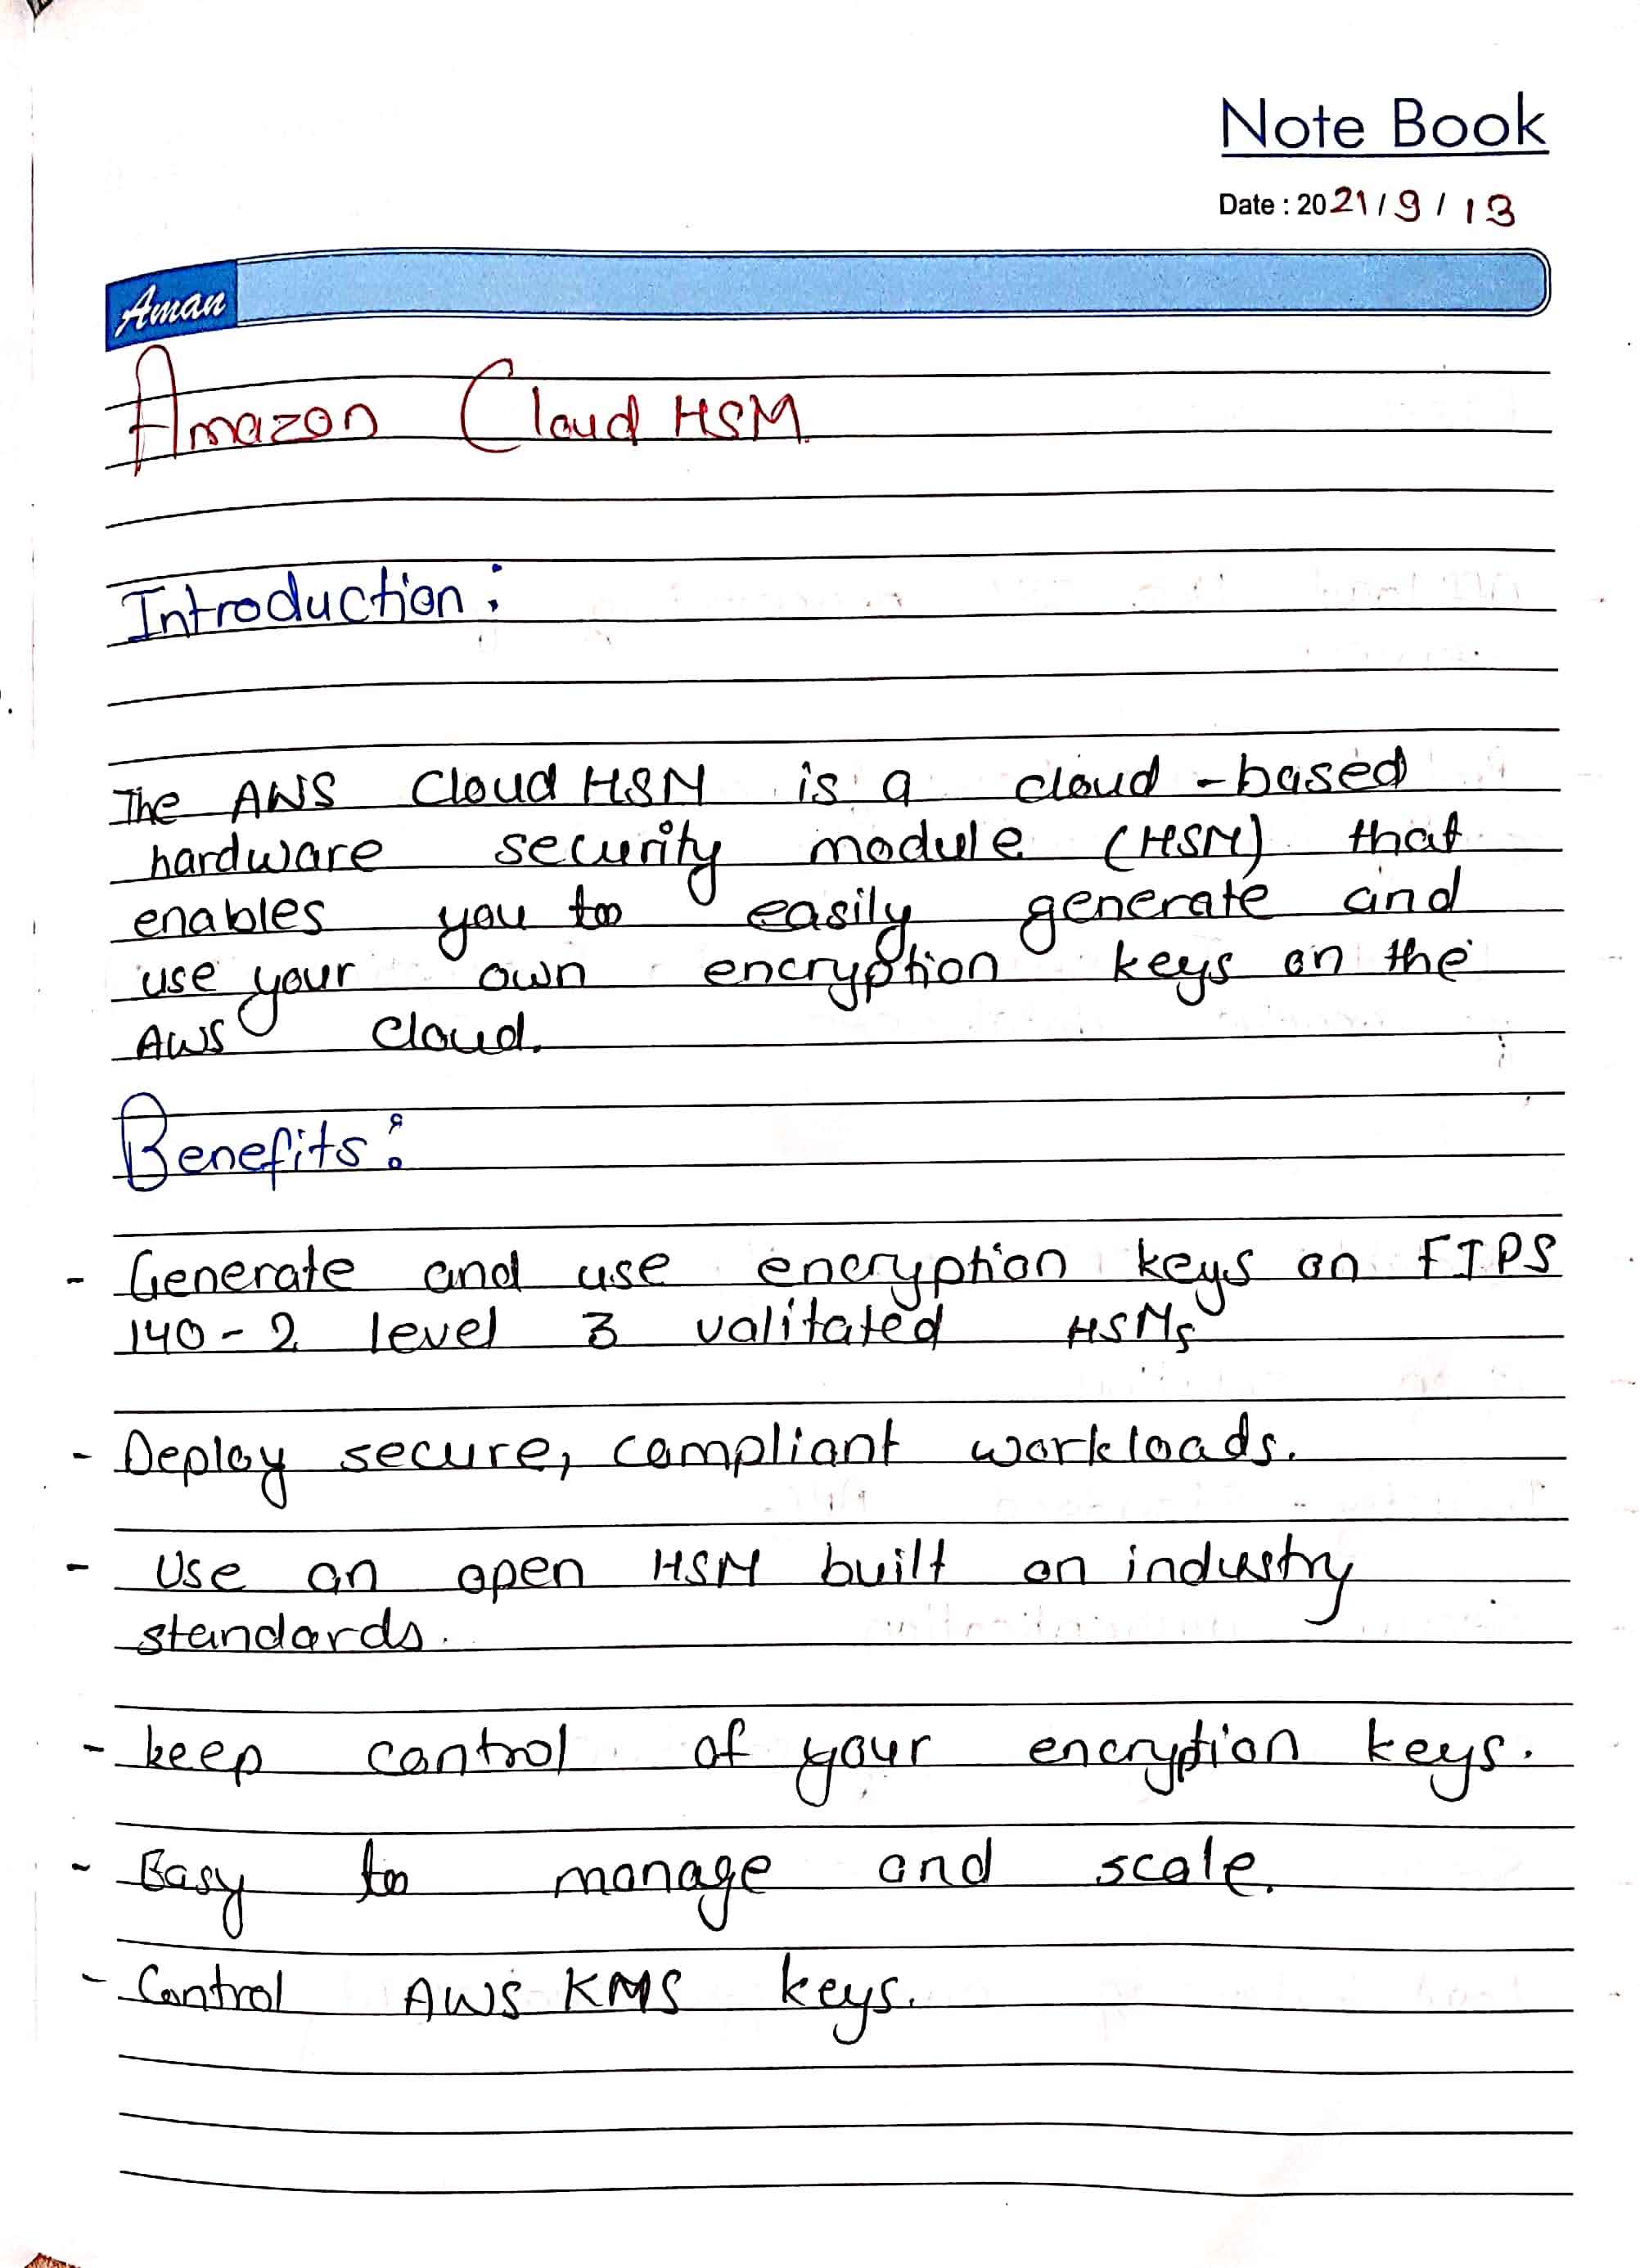 Note Book
Date : 2021/9/13
Aman
Amazon Cloud HSM
Introduction:
The AWS Cloud HSM is a cloud-based
hardware security module (HSM) that
enables you too easily generate and
use your own encryption keys on the
AWS Cloud.
Benefits:
- Generate and use encryption keys on FIPS
140-2 level 3 valitated HSMs
- Deploy secure, compliant workloads.
- Use an open HSM built on industry
standards.
- keep control of your encryption keys.
- Easy too manage and scale.
- Control AWS KMS keys.